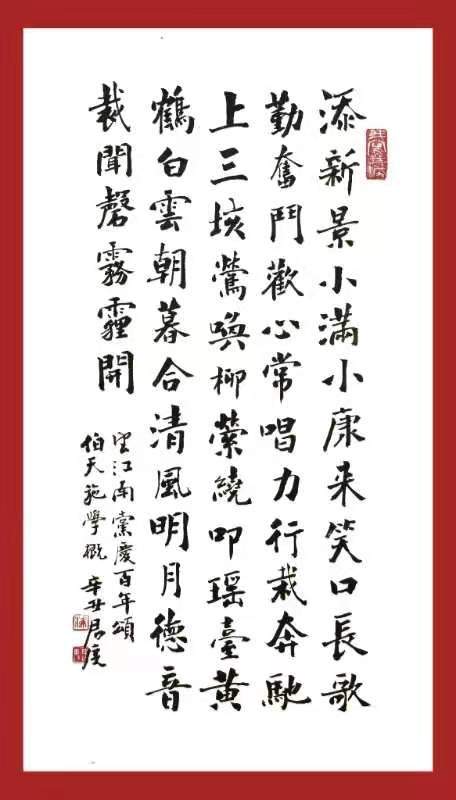 添新景小滿小康来笑口長歌
勤奮鬥歡心常唱力行栽奔馳
上三垓鶯喚柳縈繞叩瑶臺黄
鶴白雲朝暮合清風明月德音
裁聞磬霧霾開
望江南黨慶百年頌
伯天施學概 辛丑